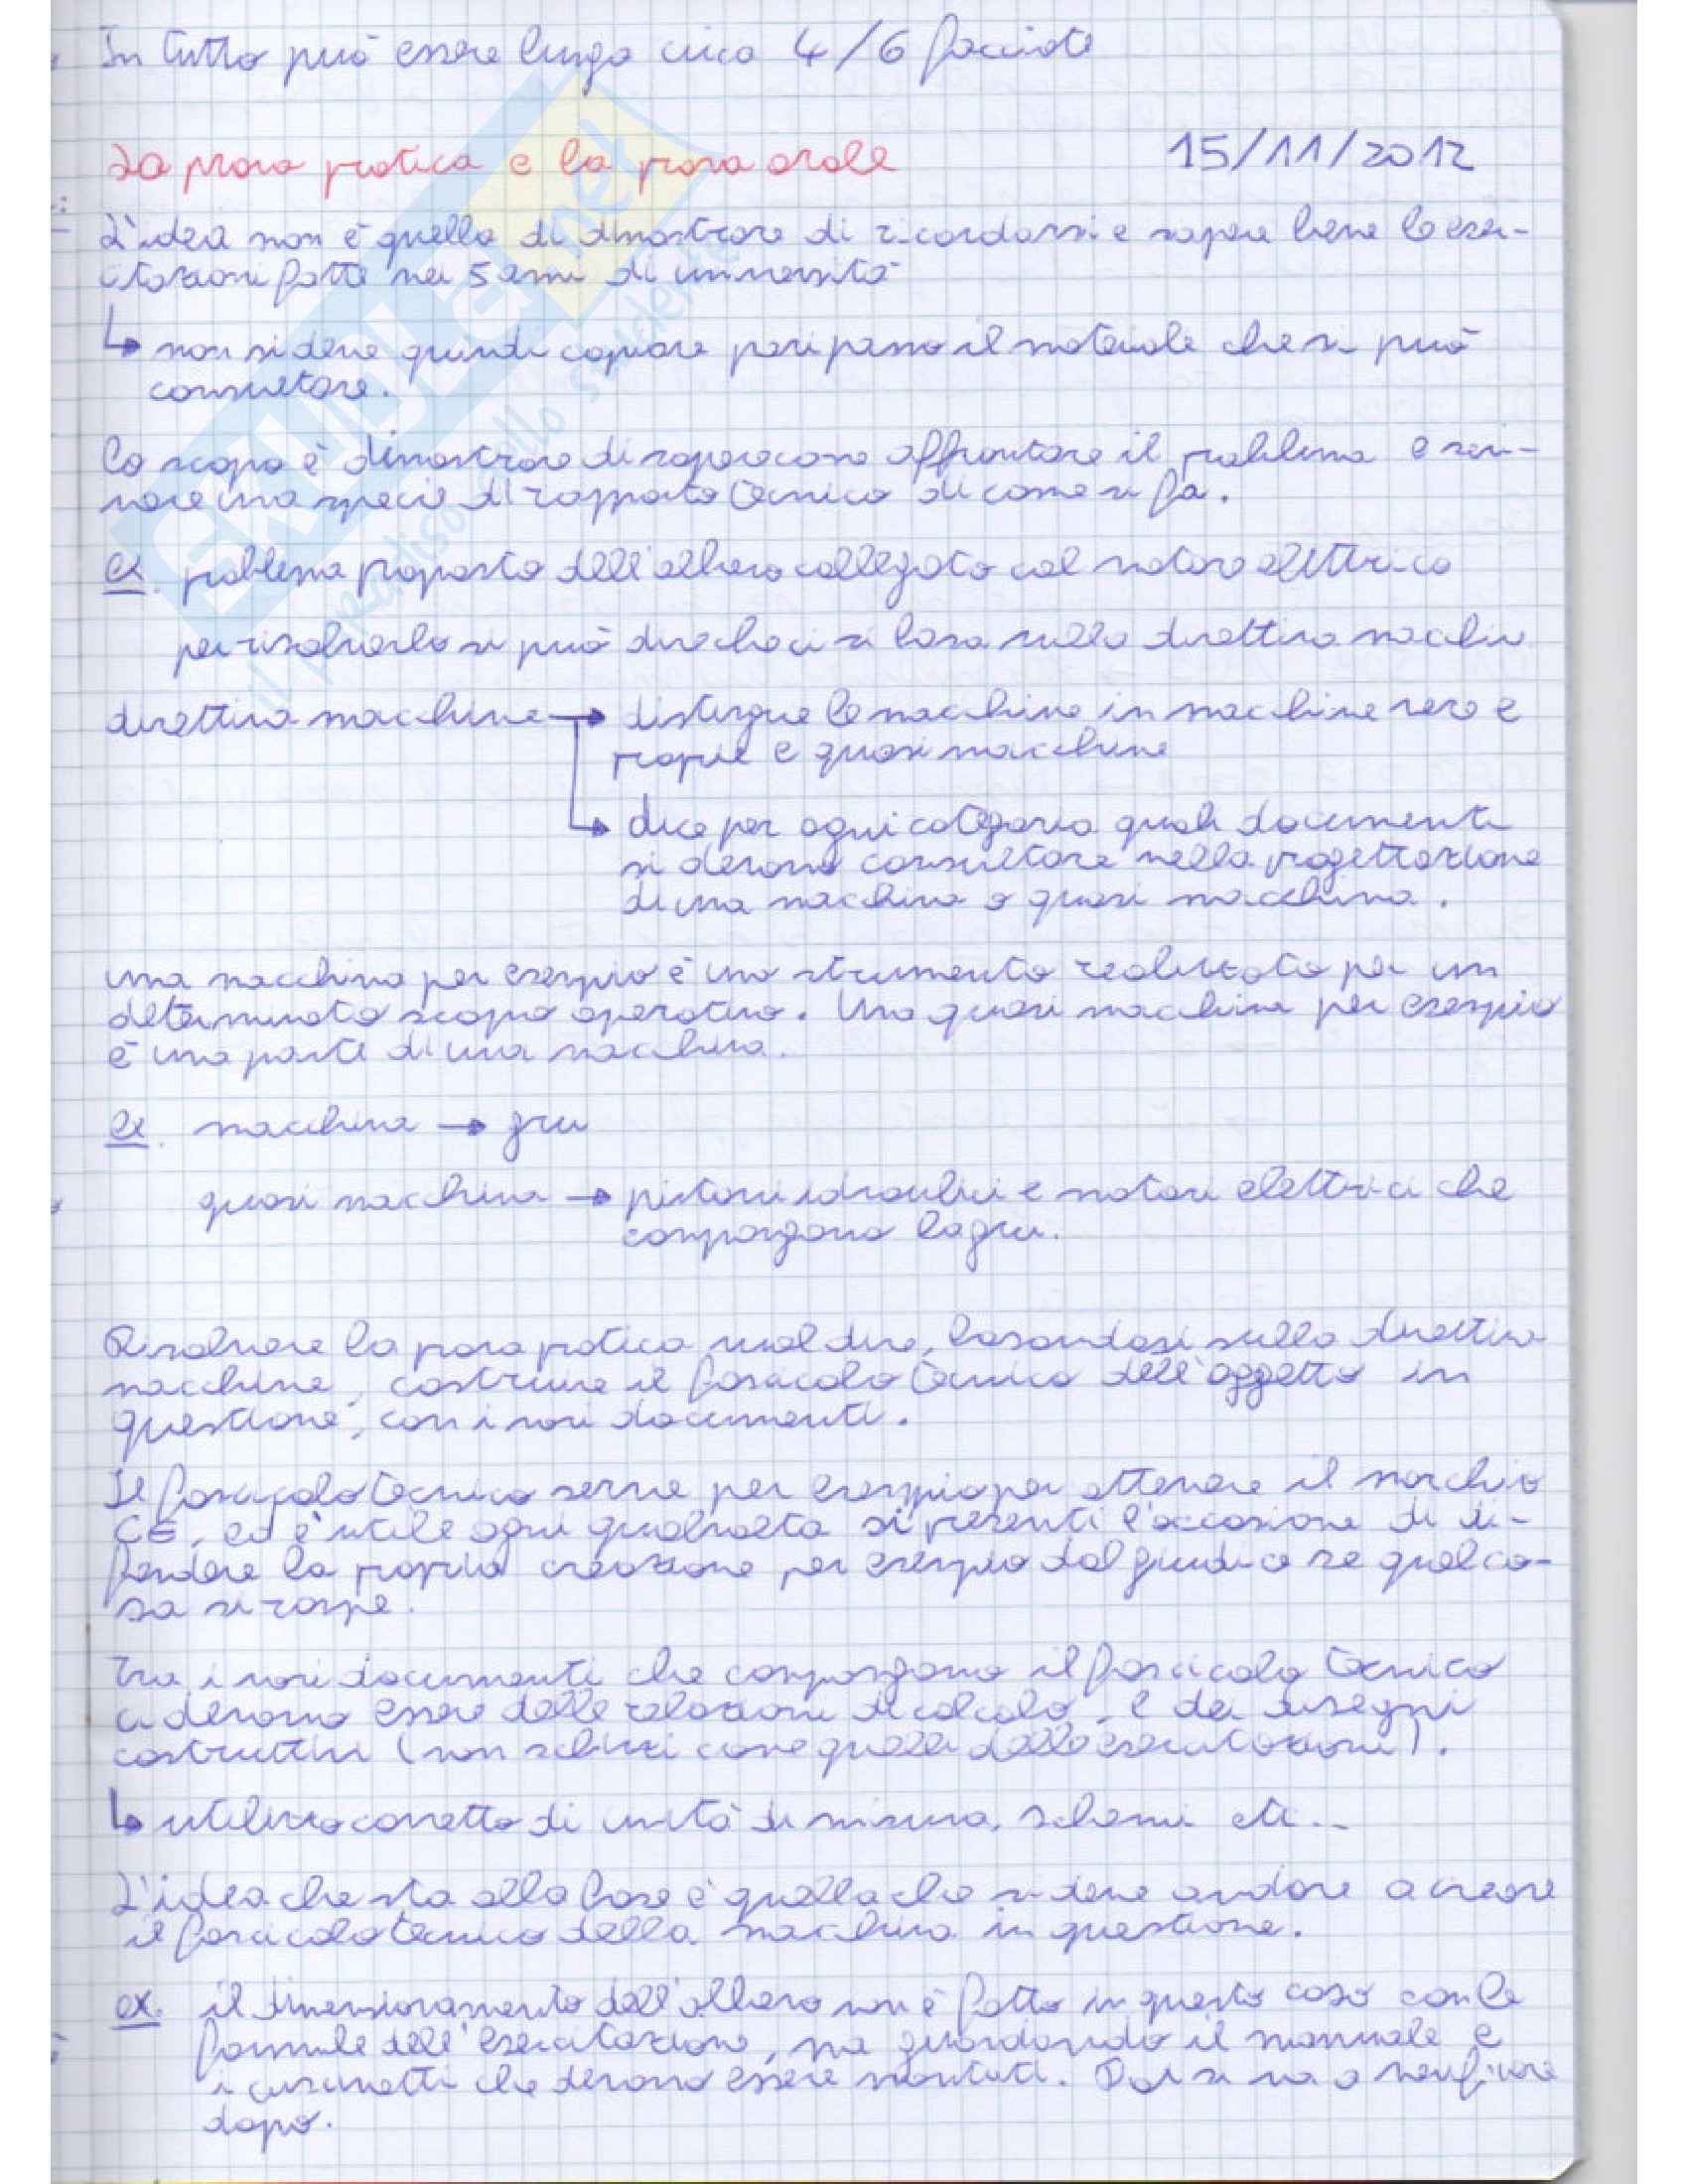 In tutto può essere lungo circa 4/6 facciate
La prova pratica e la prova orale 15/11/2012
L'idea non è quella di dimostrare di ricordarsi e sapere bene le eser-
citazioni fatte nei 5 anni di università
↳ non si deve quindi copiare pari passo il materiale che si può
consultare.
Lo scopo è dimostrare di sapere come affrontare il problema e scri-
vere una specie di rapporto tecnico di come si fa.
ex. problema proposto dell'albero collegato col motore elettrico
per risolverlo si può dire che ci si basa sulla direttiva macchine
direttiva macchine → distingue le macchine in macchine vere e
proprie e quasi macchine
↳ dice per ogni categoria quali documenti
si devono consultare nella progettazione
di una macchina o quasi macchina.
una macchina per esempio è uno strumento realizzato per un
determinato scopo operativo. Una quasi macchina per esempio
è una parte di una macchina.
ex. macchina → gru
quasi macchina → pistoni idraulici e motori elettrici che
compongono la gru.
Risolvere la prova pratica vuol dire, basandosi sulla direttiva
macchine, costruire il fascicolo tecnico dell'oggetto in
questione, con i vari documenti.
Il fascicolo tecnico serve per esempio per ottenere il marchio
CE, ed è utile ogni qualvolta si presenti l'occasione di di-
fendere la propria creazione per esempio dal giudice se qualco-
sa si rompe.
Tra i vari documenti che compongono il fascicolo tecnico
ci devono essere delle relazioni di calcolo, e dei disegni
costruttivi (non schizzi come quelli delle esercitazioni).
↳ utilizzo corretto di unità di misura, schemi etc...
L'idea che sta alla base è quella che si deve andare a creare
il fascicolo tecnico della macchina in questione.
ex. il dimensionamento dell'albero non è fatto in questo caso con le
formule dell'esercitazione, ma guardando il manuale e
i cuscinetti che devono essere montati. Poi si va a verificare
dopo.
SKUOLA.net
il paradiso dello studente